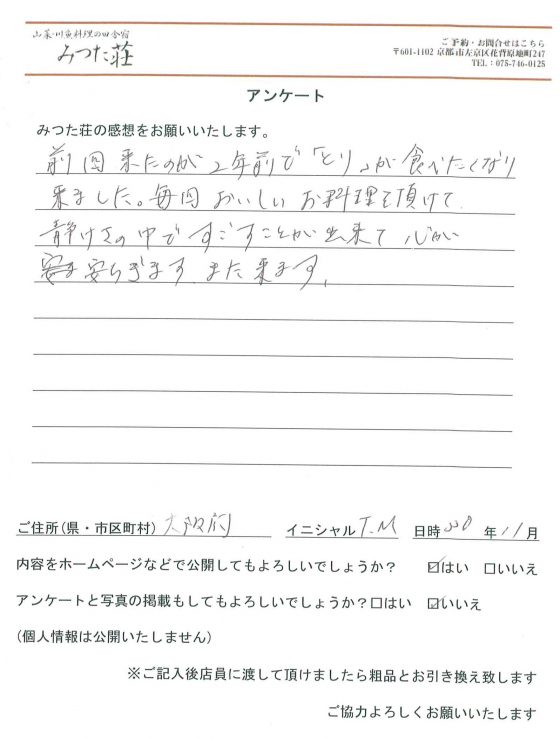 山菜・川魚料理の田舎宿
みつた荘
ご予約・お問合せはこちら
〒601-1102 京都市左京区花背原地町247
TEL：075-746-0125
アンケート
みつた荘の感想をお願いいたします。
前回来たのが2年前で「とり」が食べたくなり
来ました。毎回おいしいお料理を頂けて
静けさの中ですごすことが出来て心が
安らぎます。また来ます。
ご住所(県・市区町村) 大阪府 イニシャル T.M 日時 年 11月
内容をホームページなどで公開してもよろしいでしょうか？ ☑はい □いいえ
アンケートと写真の掲載もしてもよろしいでしょうか？□はい ☑いいえ
(個人情報は公開いたしません)
※ご記入後店員に渡して頂けましたら粗品とお引き換え致します
ご協力よろしくお願いいたします